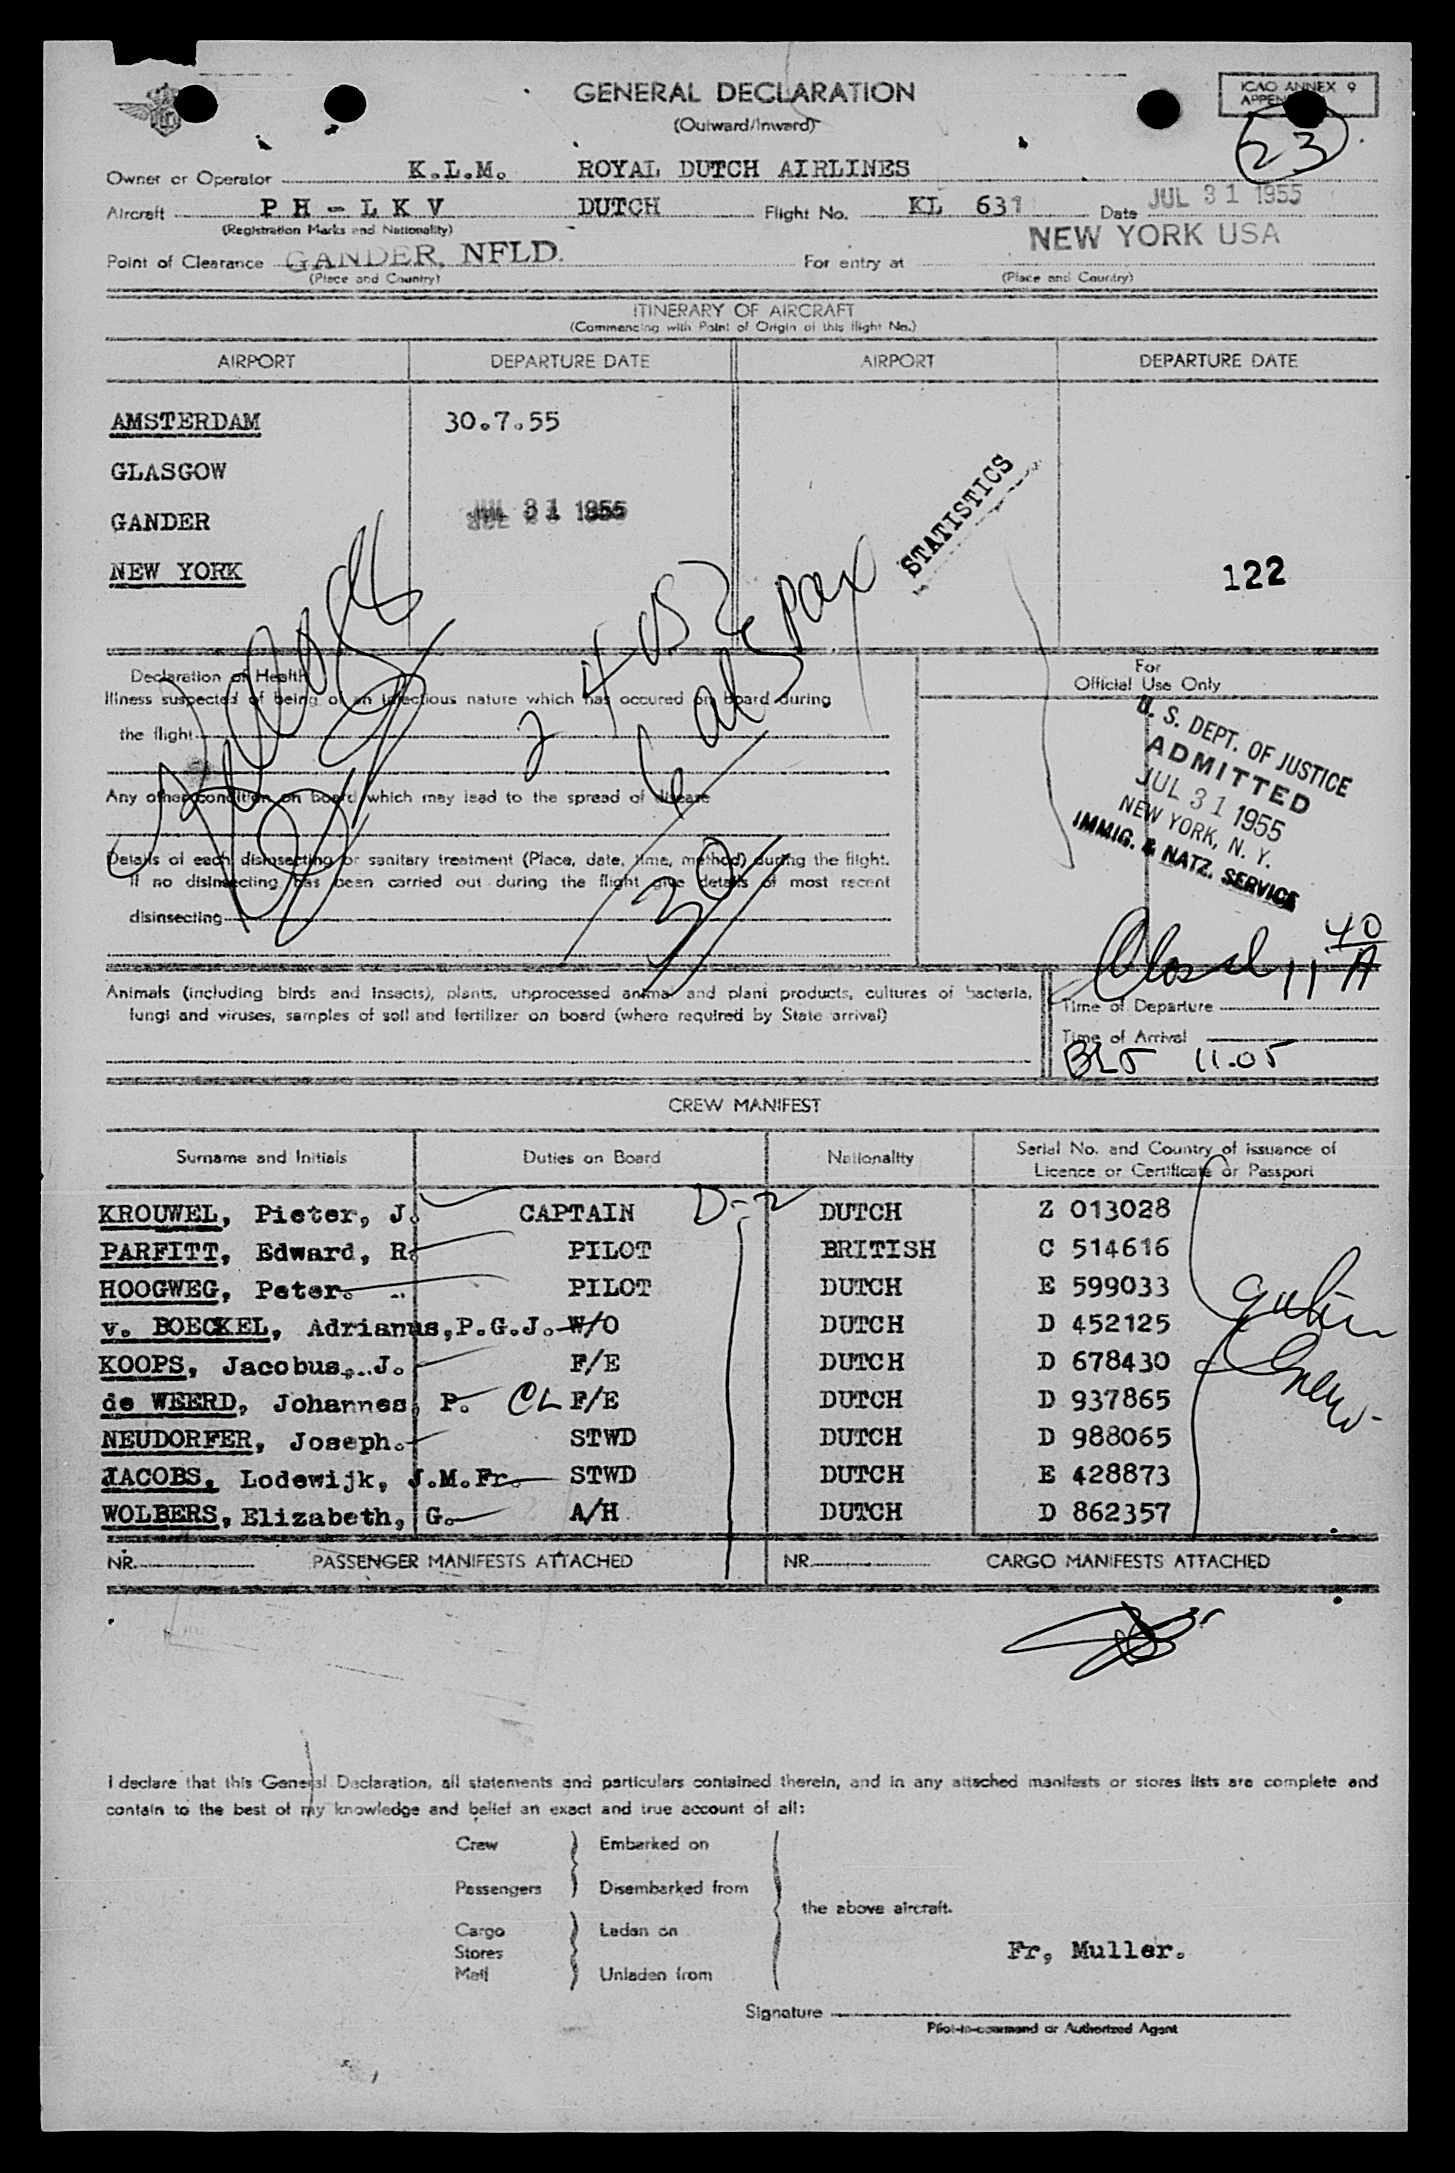 GENERAL DECLARATION
(Outward/Inward)
ICAO ANNEX 9
23
Owner or Operator K.L.M. ROYAL DUTCH AIRLINES
Aircraft PH-LKV DUTCH Flight No. KL 631 Date JUL 31 1955
(Registration Marks and Nationality)
NEW YORK USA
Point of Clearance GANDER, NFLD. For entry at
(Place and Country) (Place and Country)
ITINERARY OF AIRCRAFT
(Commencing with Point of Origin of this flight No.)
AIRPORT DEPARTURE DATE AIRPORT DEPARTURE DATE
AMSTERDAM 30.7.55
GLASGOW
STATISTICS
GANDER JUL 31 1955
NEW YORK
122
Declaration of Health
For
Official Use Only
Illness suspected of being of an infectious nature which has occured on board during
the flight
Any other condition on board which may lead to the spread of disease
Details of each disinsecting or sanitary treatment (Place, date, time, method) during the flight.
If no disinsecting has been carried out during the flight give details of most recent
disinsecting
pax
30
U. S. DEPT. OF JUSTICE
ADMITTED
JUL 31 1955
NEW YORK, N. Y.
IMMIG. & NATZ. SERVICE
Closed 11 40/A
Animals (including birds and insects), plants, unprocessed animal and plant products, cultures of bacteria,
fungi and viruses, samples of soil and fertilizer on board (where required by State arrival)
Time of Departure
Time of Arrival
11.05
CREW MANIFEST
Surname and Initials Duties on Board Nationality Serial No. and Country of issuance of
Licence or Certificate or Passport
KROUWEL, Pieter, J. CAPTAIN D-2 DUTCH Z 013028
PARFITT, Edward, R. PILOT BRITISH C 514616
HOOGWEG, Peter. PILOT DUTCH E 599033
v. BOECKEL, Adrianus, P.G.J. W/O DUTCH D 452125
KOOPS, Jacobus, J. F/E DUTCH D 678430
de WEERD, Johannes, P. CL F/E DUTCH D 937865
NEUDORFER, Joseph. STWD DUTCH D 988065
JACOBS, Lodewijk, J.M.Fr. STWD DUTCH E 428873
WOLBERS, Elizabeth, G. A/H DUTCH D 862357
NR. PASSENGER MANIFESTS ATTACHED NR. CARGO MANIFESTS ATTACHED
I declare that this General Declaration, all statements and particulars contained therein, and in any attached manifests or stores lists are complete and
contain to the best of my knowledge and belief an exact and true account of all:
Crew Embarked on
Passengers Disembarked from
the above aircraft.
Cargo Laden on
Stores
Mail Unladen from
Fr, Muller.
Signature
Pilot-in-command or Authorized Agent